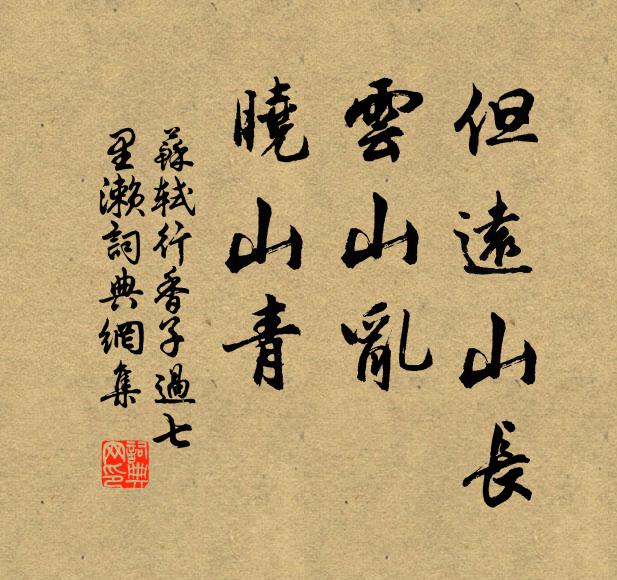 但遠山長
雲山亂
曉山青
蘇軾行香子過七
里瀨詞典網集
詞典网印